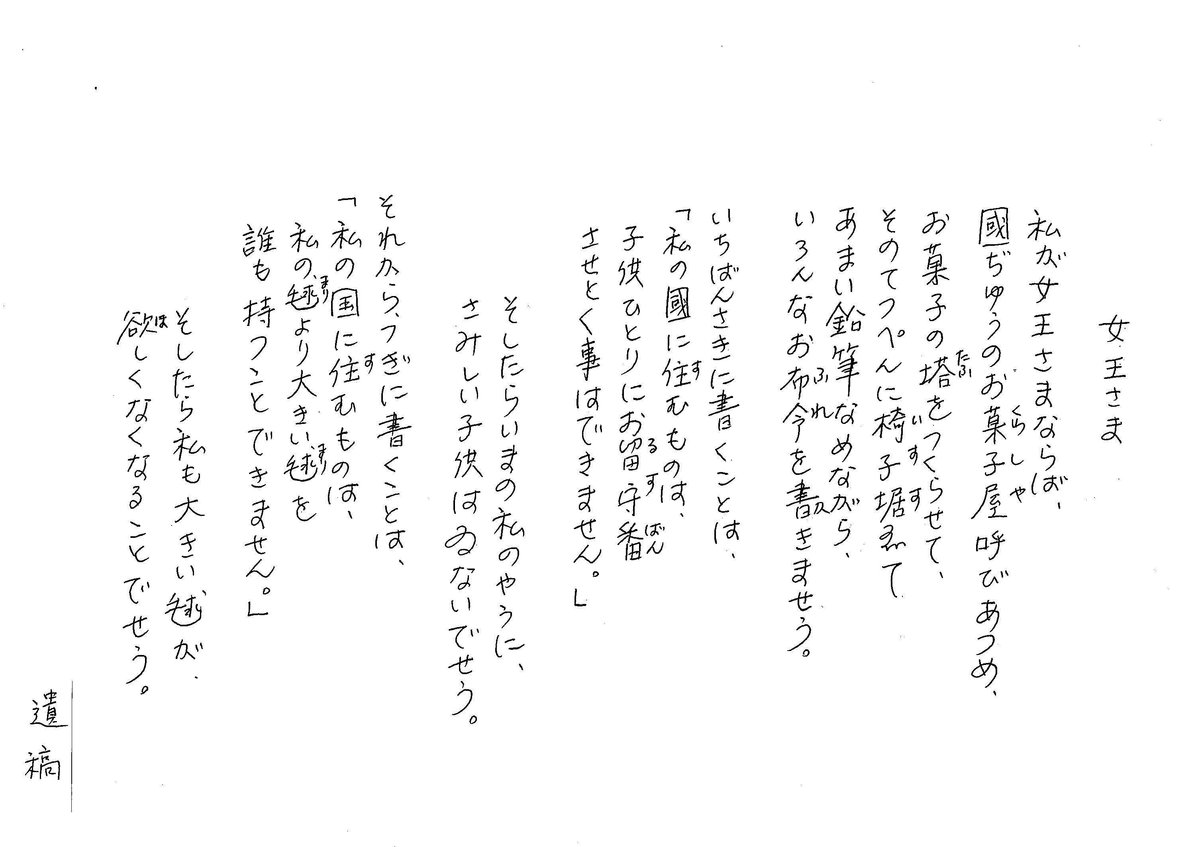 女王さま
私が女王さまならば、
國ぢゆうのお菓子屋呼びあつめ、
お菓子の塔をつくらせて、
そのてつぺんに椅子据ゑて
あまい鉛筆なめながら、
いろんなお布令を書きませう。
いちばんさきに書くことは、
「私の國に住むものは、
子供ひとりにお留守番
させとく事はできません。」
そしたらいまの私のやうに、
さみしい子供はゐないでせう。
それから、つぎに書くことは、
「私の国に住むものは、
私の毬より大きい毬を
誰も持つことできません。」
そしたら私も大きい毬が、
欲しくなくなることでせう。
遺稿